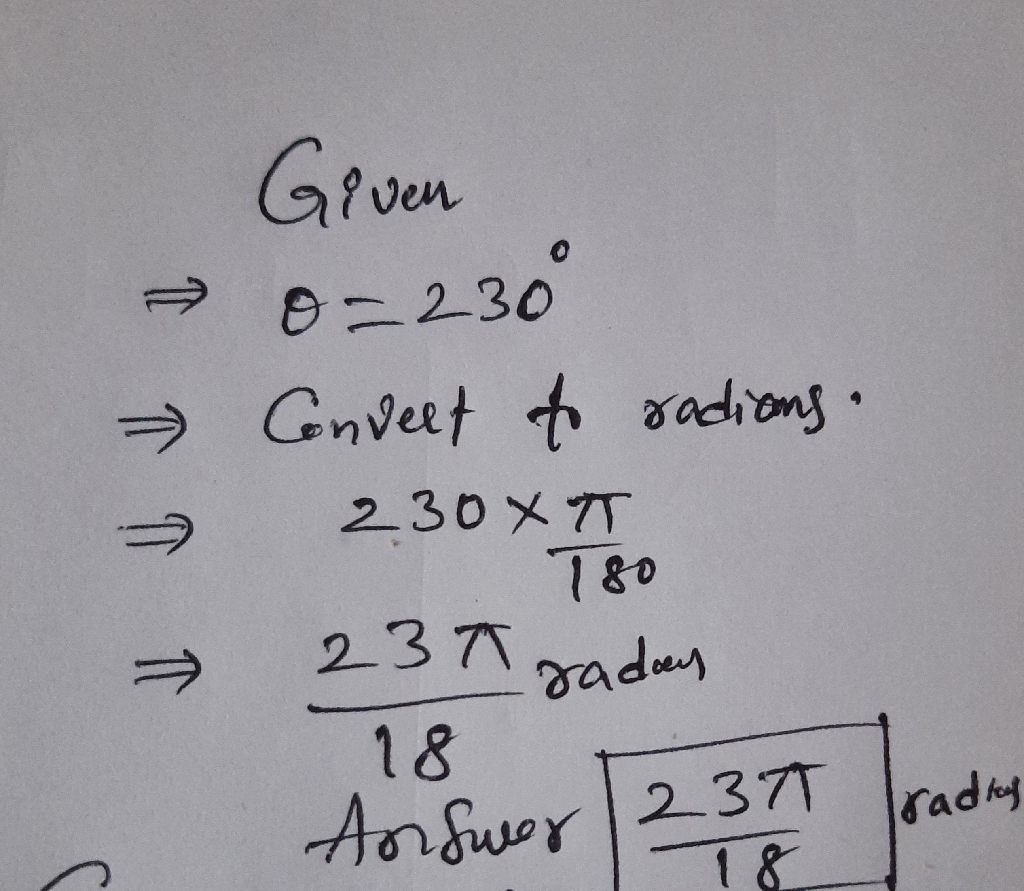 Given
⇒ θ = 230°
⇒ Convert to radians.
⇒ 230 × π
180
⇒ 23π radians
18
Answer 23π radians
18